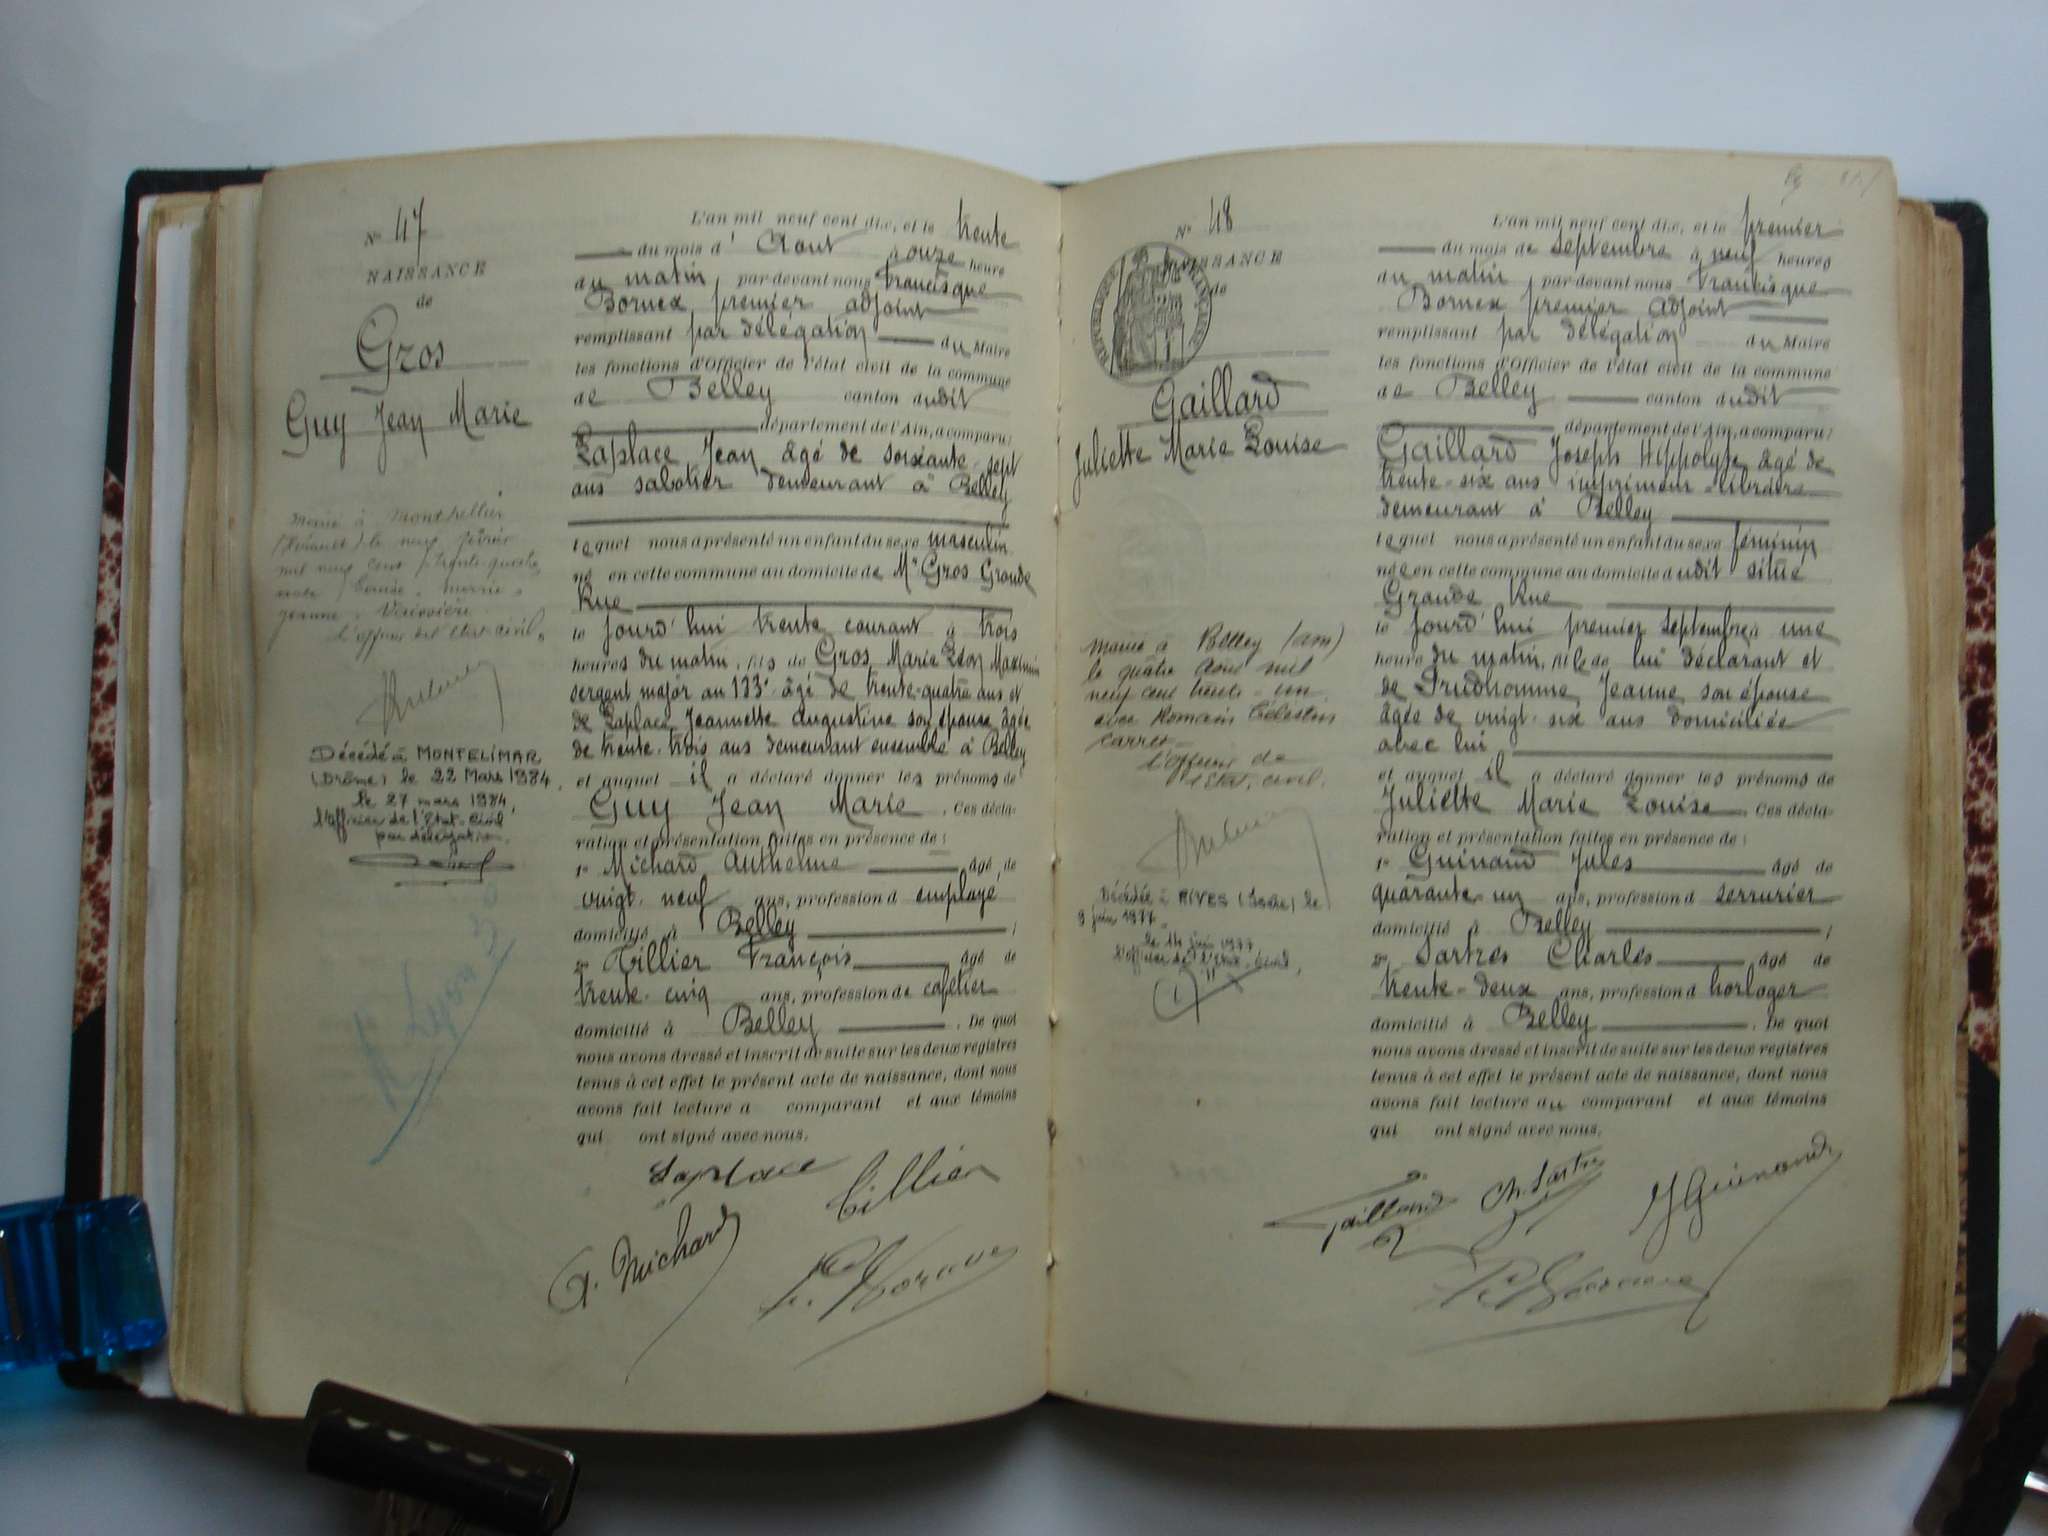 N° 47
NAISSANCE
de
Gros
Guy Jean Marie
Marié à Montpellier
(Hérault) le neuf février
mil neuf cent trente-quatre
avec Louise, Marie,
Jeanne,
L'officier de l'Etat-civil,
Décédé à MONTELIMAR
(Drôme) le 22 Mars 1984,
le 27 mars 1984,
l'officier de l'Etat-Civil
par délégation.
Lyon
L'an mil neuf cent dix, et le trente
du mois d'Aout à onze heure
du matin, par devant nous Francisque
Bornex premier adjoint
remplissant par délégation du Maire
les fonctions d'Officier de l'état civil de la commune
de Belley canton dudit
département de l'Ain, a comparu:
Laplace Jean âgé de soixante-sept
ans sabotier demeurant à Belley
lequel nous a présenté un enfant du sexe masculin
né en cette commune au domicile de Mr Gros Grande
Rue
le jourd'hui trente courant à trois
heures du matin, fils de Gros Marie Léon Maximin
sergent major au 133e âgé de trente-quatre ans et
de Laplace Jeannette Augustine son épouse âgée
de trente-trois ans demeurant ensemble à Belley
et auquel il a déclaré donner les prénoms de
Guy Jean Marie. Ces décla-
ration et présentation faites en présence de:
1° Michard Anthelme âgé de
vingt-neuf ans, profession d employé
domicilié à Belley;
2° Tillier François âgé de
trente-cinq ans, profession de cafetier
domicilié à Belley. De quoi
nous avons dressé et inscrit de suite sur les deux registres
tenus à cet effet le présent acte de naissance, dont nous
avons fait lecture a comparant et aux témoins
qui ont signé avec nous.
Laplace Tillier
A. Michard
N° 48
NAISSANCE
de
RÉPUBLIQUE FRANÇAISE
Gaillard
Juliette Marie Louise
Marié à Belley (Ain)
le quatre Aout mil
neuf cent trente-un
avec Romain Célestin
Carret
L'officier de
l'Etat-civil.
Décédée à RIVES (Isère) le
9 juin 1977
le 14 juin 1977
l'officier de l'Etat-Civil,
L'an mil neuf cent dix, et le premier
du mois de Septembre à neuf heures
du matin, par devant nous Francisque
Bornex premier adjoint
remplissant par délégation du Maire
les fonctions d'Officier de l'état civil de la commune
de Belley canton dudit
département de l'Ain, a comparu:
Gaillard Joseph Hippolyte, âgé de
trente-six ans imprimeur-libraire
demeurant à Belley
lequel nous a présenté un enfant du sexe féminin
née en cette commune au domicile dudit situé
Grande Rue
le jourd'hui premier Septembre à une
heure du matin, fille de lui déclarant et
de Prudhomme Jeanne son épouse
âgée de vingt-six ans domiciliée
avec lui
et auquel il a déclaré donner les prénoms de
Juliette Marie Louise. Ces décla-
ration et présentation faites en présence de:
1° Guinand Jules âgé de
quarante un ans, profession d serrurier
domicilié à Belley;
2° Sartres Charles âgé de
trente-deux ans, profession d horloger
domicilié à Belley. De quoi
nous avons dressé et inscrit de suite sur les deux registres
tenus à cet effet le présent acte de naissance, dont nous
avons fait lecture au comparant et aux témoins
qui ont signé avec nous.
Gaillard Ch. Sartre J Guinand